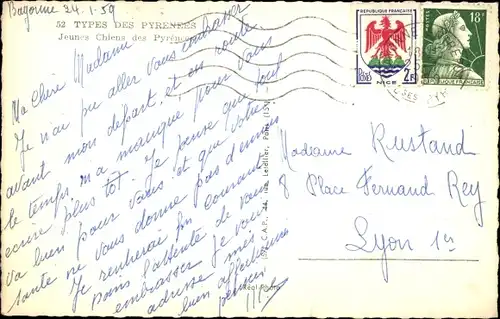 Bayonne 24.1.59
52 TYPES DES PYRENEES
Jeunes Chiens des Pyrénées
Ma Chère Madame
Je n'ai pu aller vous embrasser
avant mon départ, et en route
le temps m'a manqué pour vous
écrire plus tôt. Je pense que tout
va bien pour vous et que votre
santé ne vous donne pas d'ennuis
Je rentrerai fin courant
dans l'attente de vous
embrasser je vous
adresse mes
bien affectueuses
pensées
REPUBLIQUE FRANÇAISE
POSTES
2F
NICE
POSTES
18F
REPUBLIQUE FRANÇAISE
Madame Rustand
8 Place Fernand Rey
Lyon 1er
C.A.P.
Paris
Réel Photo